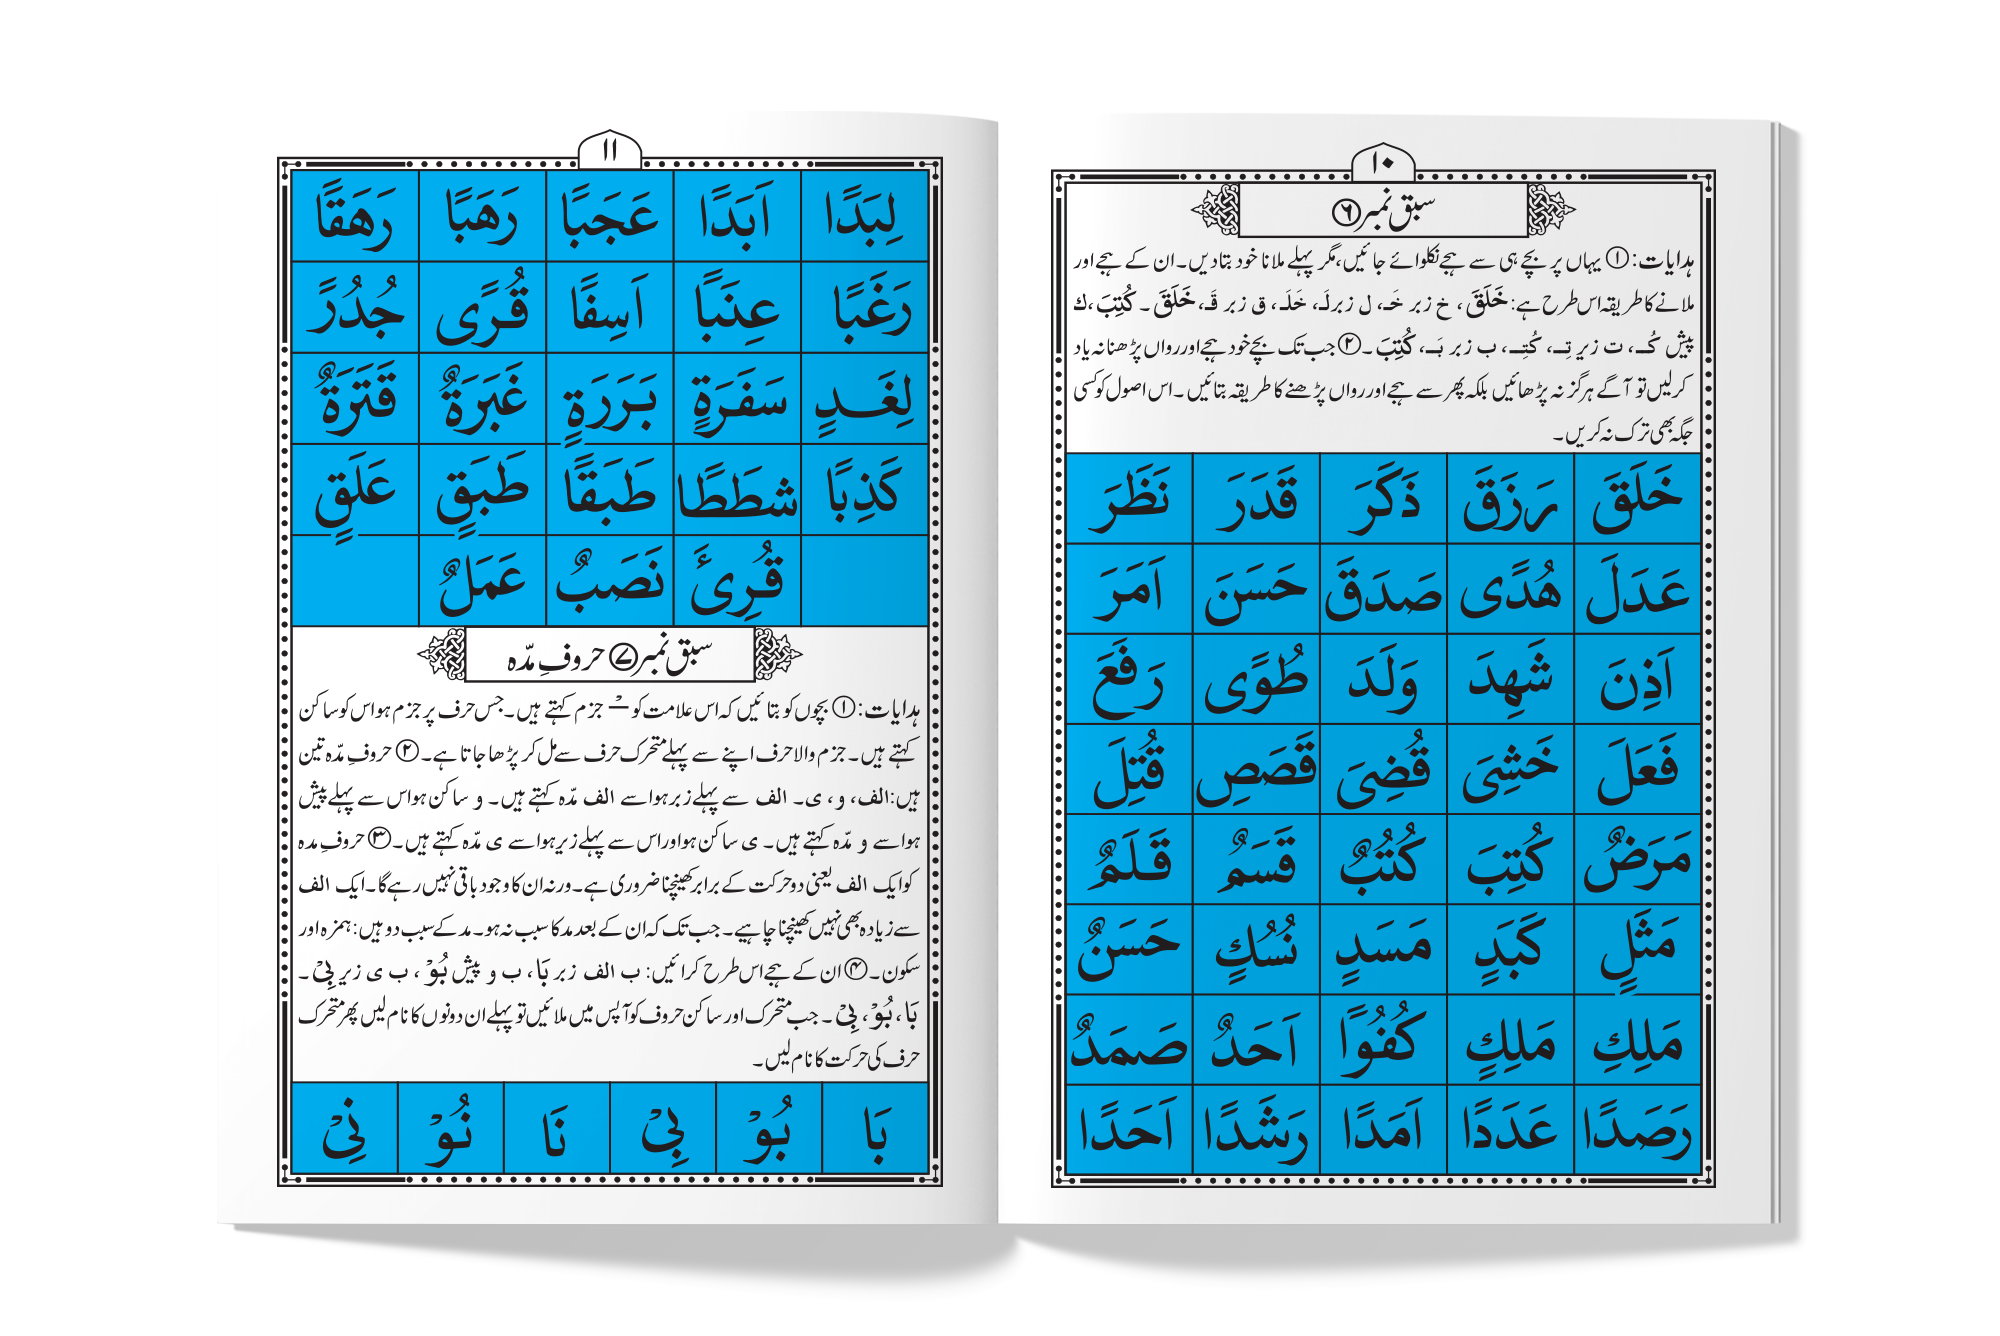 ١٠
سبق نمبر ٦
ہدایات: ① یہاں پر بچے ہی سے ہجے نکلوائے جائیں، مگر پہلے ملانا خود بتادیں۔ ان کے ہجے اور
ملانے کا طریقہ اس طرح ہے: خَلَقَ، خ زبر خَـ، ل زبر لَـ، خَلَـ، ق زبر قَـ، خَلَقَ۔ كُتِبَ، ك
پیش كُـ، ت زیر تِـ، كُتِـ، ب زبر بَـ، كُتِبَ۔ ② جب تک بچے خود ہجے اور رواں پڑھنا نہ یاد
کرلیں تو آگے ہرگز نہ پڑھائیں بلکہ پھر سے ہجے اور رواں پڑھنے کا طریقہ بتائیں۔ اس اصول کو کسی
جگہ بھی ترک نہ کریں۔
خَلَقَ رَزَقَ ذَكَرَ قَدَرَ نَظَرَ
عَدَلَ هُدًى صَدَقَ حَسَنَ اَمَرَ
اَذِنَ شَهِدَ وَلَدَ طُوًى رَفَعَ
فَعَلَ خَشِىَ قُضِىَ قَصَصِ قُتِلَ
مَرَضٌ كُتِبَ كُتُبٌ قَسَمٌ قَلَمٌ
مَثَلٍ كَبَدٍ مَسَدٍ نُسُكٍ حَسَنٌ
مَلِكِ مَلِكٍ كُفُوًا اَحَدٌ صَمَدٌ
رَصَدًا عَدَدًا اَمَدًا رَشَدًا اَحَدًا
١١
لِبَدًا اَبَدًا عَجَبًا رَهَبًا رَهَقًا
رَغَبًا عِنَبًا اَسِفًا قُرًى جُدُرً
لِغَدٍ سَفَرَةٍ بَرَرَةٍ غَبَرَةٌ قَتَرَةٌ
كَذِبًا شَطَطًا طَبَقًا طَبَقٍ عَلَقٍ
قُرِئَ نَصَبٌ عَمَلٌ
سبق نمبر ٧ حروفِ مدّہ
ہدایات: ① بچوں کو بتائیں کہ اس علامت کو ـْـ جزم کہتے ہیں۔ جس حرف پر جزم ہو اس کو ساکن
کہتے ہیں۔ جزم والا حرف اپنے سے پہلے متحرک حرف سے مل کر پڑھا جاتا ہے۔ ② حروفِ مدّہ تین
ہیں: الف، و، ی۔ الف سے پہلے زبر ہو اسے الف مدّہ کہتے ہیں۔ و ساکن ہو اس سے پہلے پیش
ہو اسے و مدّہ کہتے ہیں۔ ی ساکن ہو اور اس سے پہلے زیر ہو اسے ی مدّہ کہتے ہیں۔ ③ حروفِ مدہ
کو ایک الف یعنی دو حرکت کے برابر کھینچنا ضروری ہے۔ ورنہ ان کا وجود باقی نہیں رہے گا۔ ایک الف
سے زیادہ بھی نہیں کھینچنا چاہیے۔ جب تک کہ ان کے بعد مد کا سبب نہ ہو۔ مد کے سبب دو ہیں: ہمزہ اور
سکون۔ ④ ان کے ہجے اس طرح کرائیں: ب الف زبر بَا، ب و پیش بُوْ، ب ی زیر بِیْ۔
بَا، بُوْ، بِیْ۔ جب متحرک اور ساکن حروف کو آپس میں ملائیں تو پہلے ان دونوں کا نام لیں پھر متحرک
حرف کی حرکت کا نام لیں۔
بَا بُوْ بِیْ نَا نُوْ نِیْ